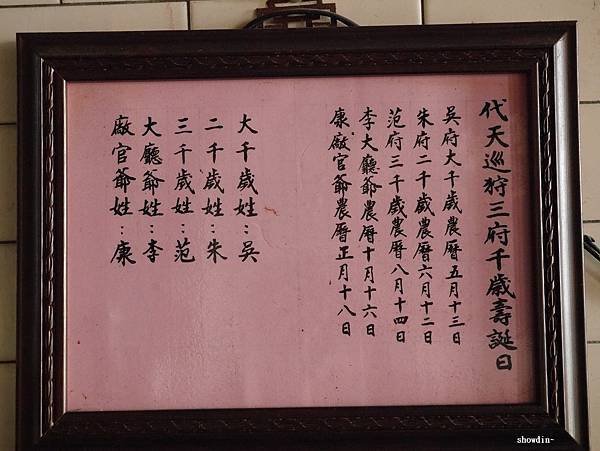 代天巡狩三府千歲壽誕日
吳府大千歲農曆五月十三日
朱府二千歲農曆六月十二日
范府三千歲農曆八月十四日
李大廳爺農曆十月十六日
康廠官爺農曆正月十八日
大千歲姓：吳
二千歲姓：朱
三千歲姓：范
大廳爺姓：李
廠官爺姓：康
showdin~